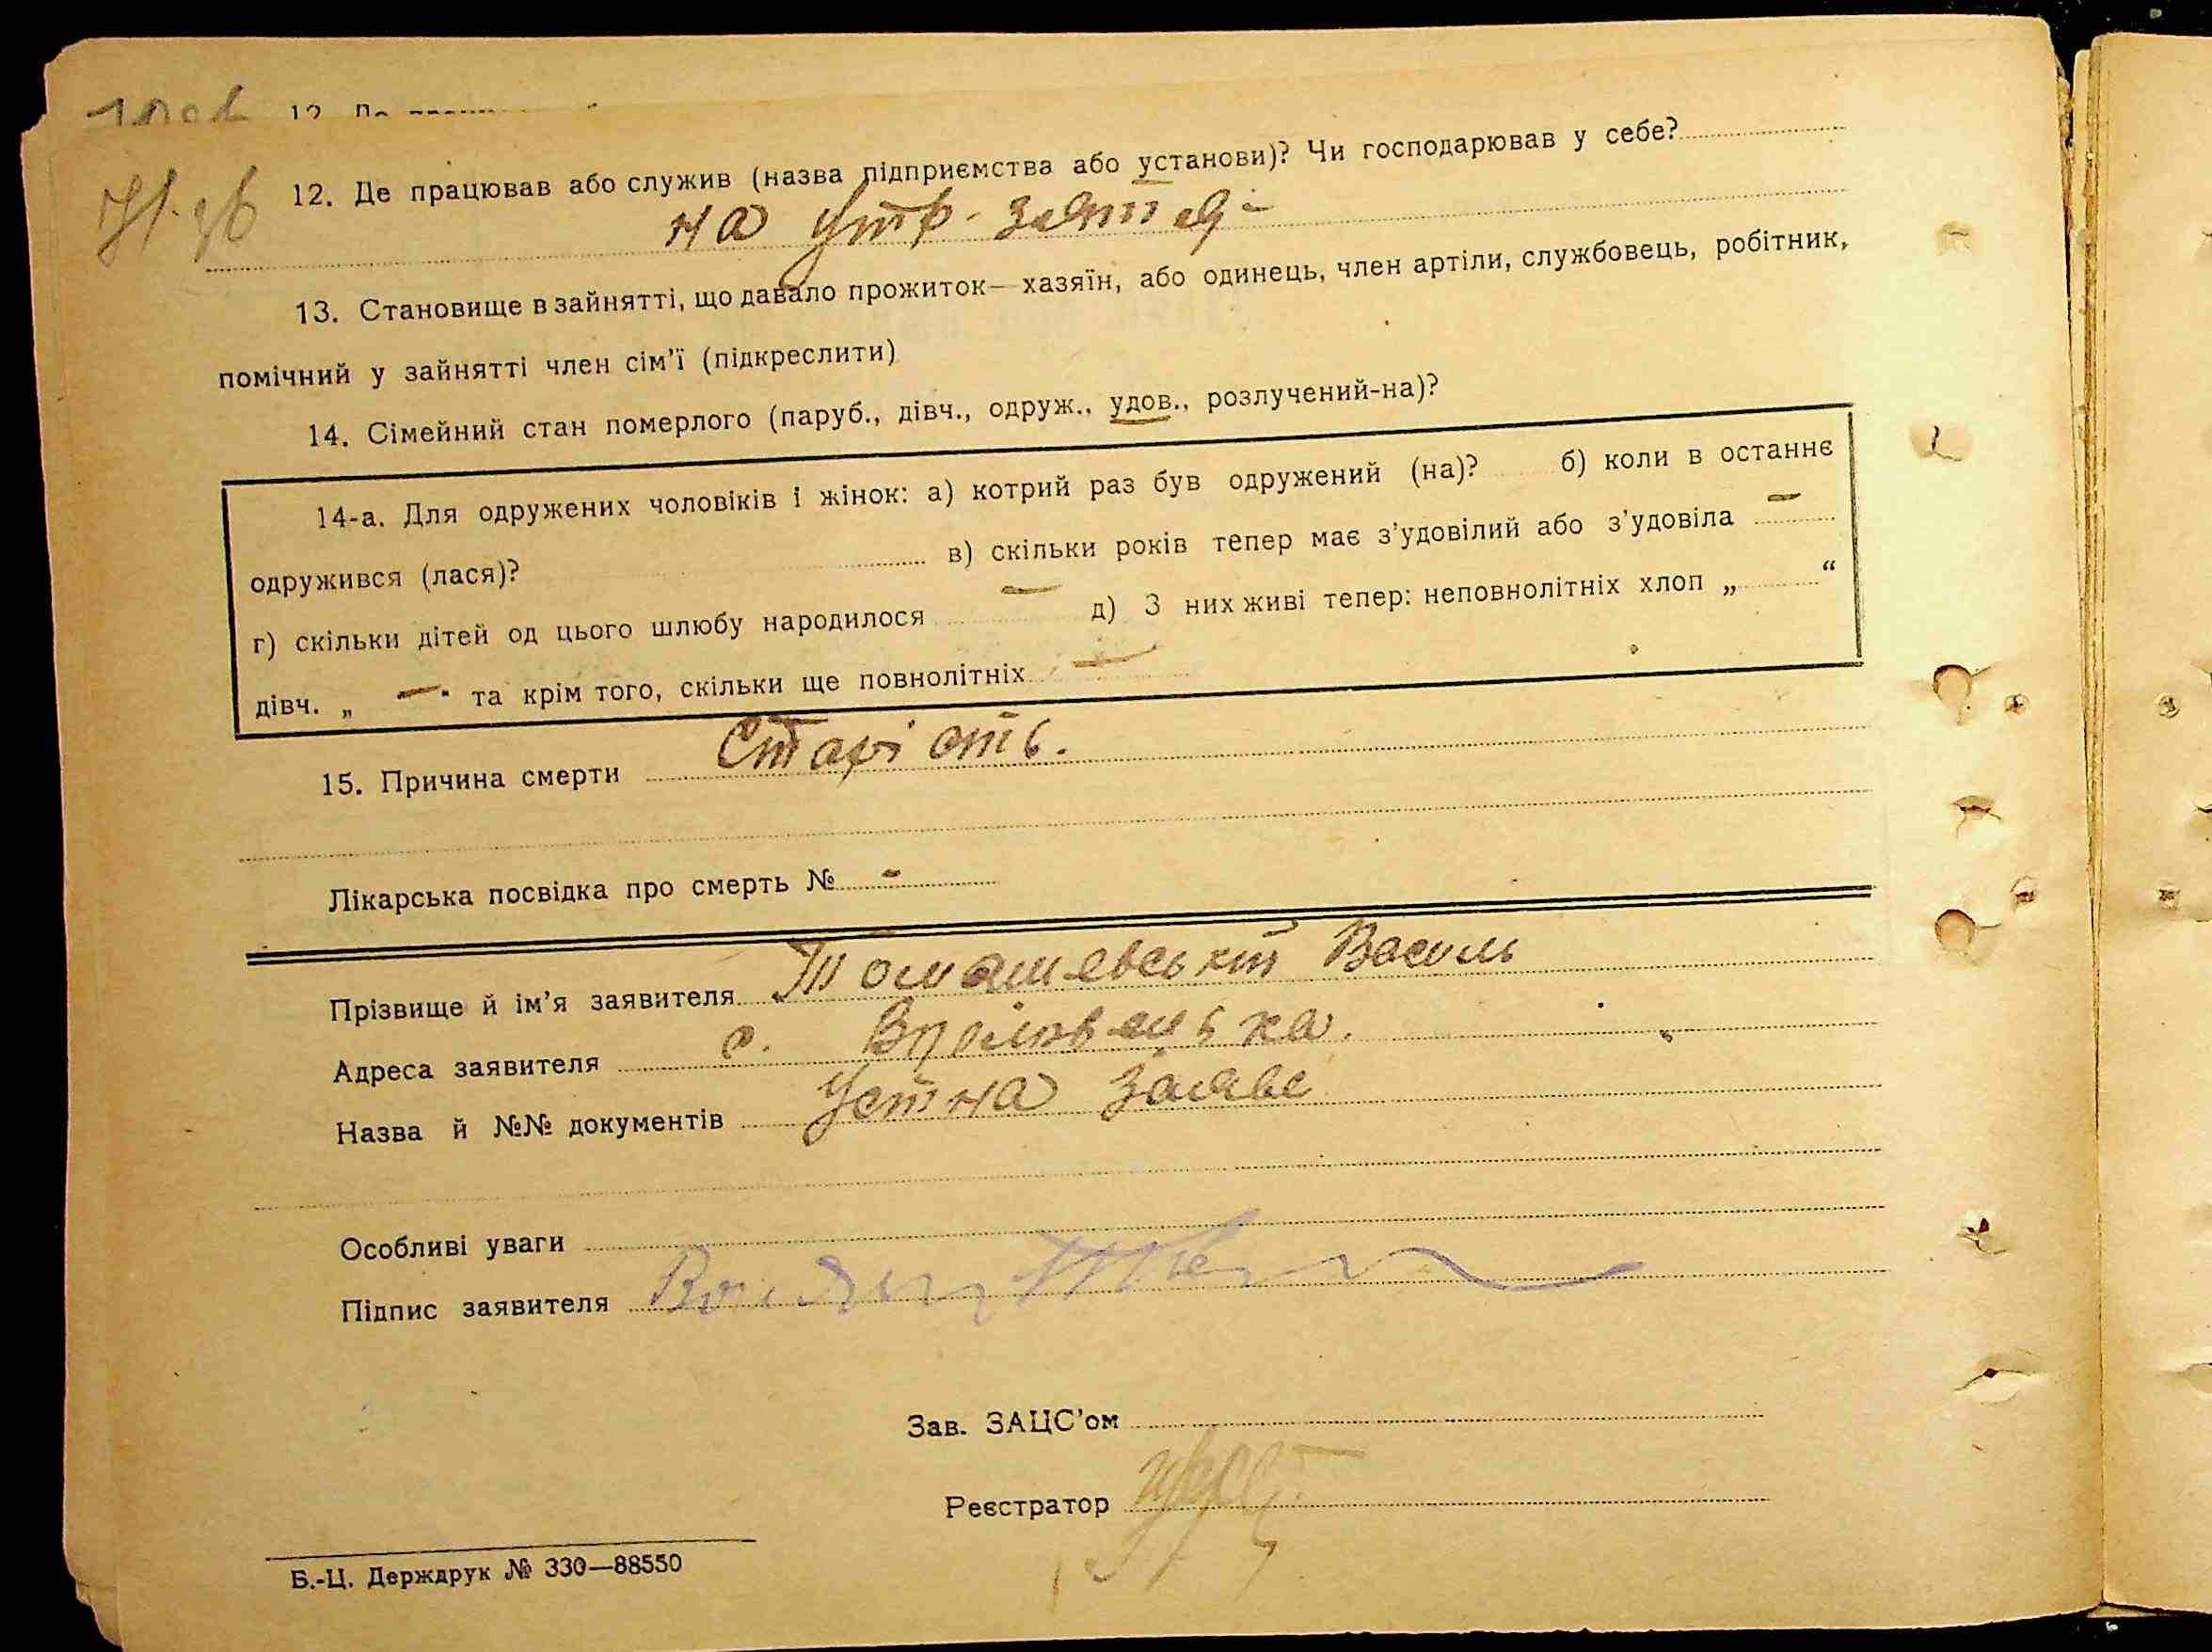 12. Де працював або служив (назва підприємства або установи)? Чи господарював у себе?
на утр. зятя
13. Становище в зайнятті, що давало прожиток—хазяїн, або одинець, член артіли, службовець, робітник,
помічний у зайнятті член сім’ї (підкреслити)
14. Сімейний стан померлого (паруб., дівч., одруж., удов., розлучений-на)?
14-а. Для одружених чоловіків і жінок: а) котрий раз був одружений (на)? б) коли в останнє
одружився (лася)? в) скільки років тепер має з’удовілий або з’удовіла —
г) скільки дітей од цього шлюбу народилося — д) З них живі тепер: неповнолітніх хлоп „ “
дівч. „ — “ та крім того, скільки ще повнолітніх —
15. Причина смерти Старість.
Лікарська посвідка про смерть № -
Прізвище й ім’я заявителя Томашевській Василь
Адреса заявителя с.
Назва й №№ документів Устна заява
Особливі уваги
Підпис заявителя
Зав. ЗАЦС’ом
Реєстратор
Б.-Ц. Держдрук № 330—88550